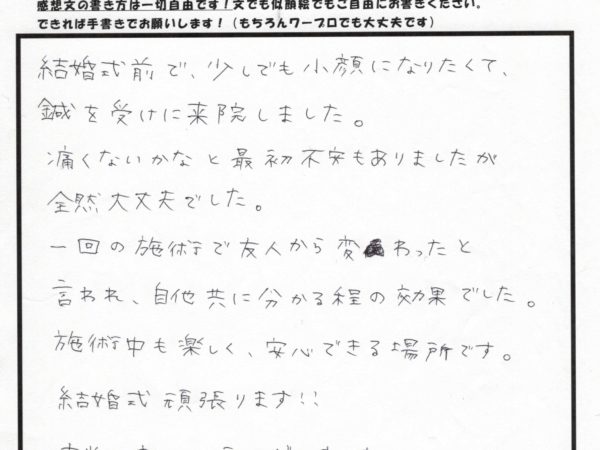 感想文の書き方は一切自由です！文でも似顔絵でもご自由にお書きください。
できれば手書きでお願いします！（もちろんワープロでも大丈夫です）
結婚式前で、少しでも小顔になりたくて、
鍼を受けに来院しました。
痛くないかなと最初不安もありましたが
全然大丈夫でした。
一回の施術で友人から変わったと
言われ、自他共に分かる程の効果でした。
施術中も楽しく、安心できる場所です。
結婚式頑張ります!!